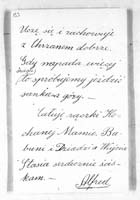 Uczę się i zachowuję
z Chrzanem dobrze.
Gdy napada więcej
śniegu
to spróbujemy jeździć
sankami z góry. —
Całuję rączki Ko-
chanej Mamie, Ba-
buni i Dziadzi a Wojcia
Stasia serdecznie ścis-
kam. —
Alfred